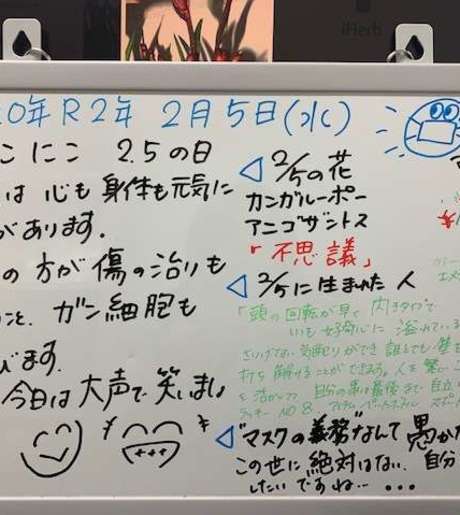 iHerb
0年R2年 2月5日(水)
こにこ 2.5の日
は 心も身体も元気に
があります。
の方が傷の治りも
こと、ガン細胞も
びます。
今日は大声で笑いまし
2/5の花
カンガルーポー
アニゴザントス
「不思議」
2/5に生まれた人
「頭の回転が早く
いも 好奇心に溢れている
さりげない気配りができ 誰とでも
打ち解けることができます。人を
を活かして 自分の
ラッキー NO 8
"マスクの義務"なんて 愚か
この世に絶対はない... 自分
したいですね... ...